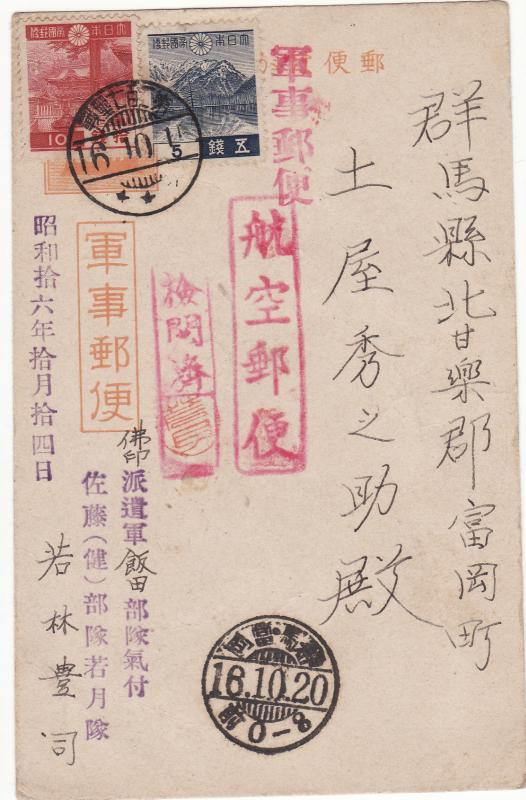 郵便
軍事郵便
群馬縣北甘樂郡富岡町
土屋秀之助殿
航空郵便
検閲済
軍事郵便
佛印派遣軍飯田部隊氣付
佐藤（健）部隊若月隊
若林豊司
昭和拾六年拾月拾四日
大日本帝國郵便
10
大日本帝國郵便
五錢
16.10.15
群馬・富岡
16.10.20
前0-8